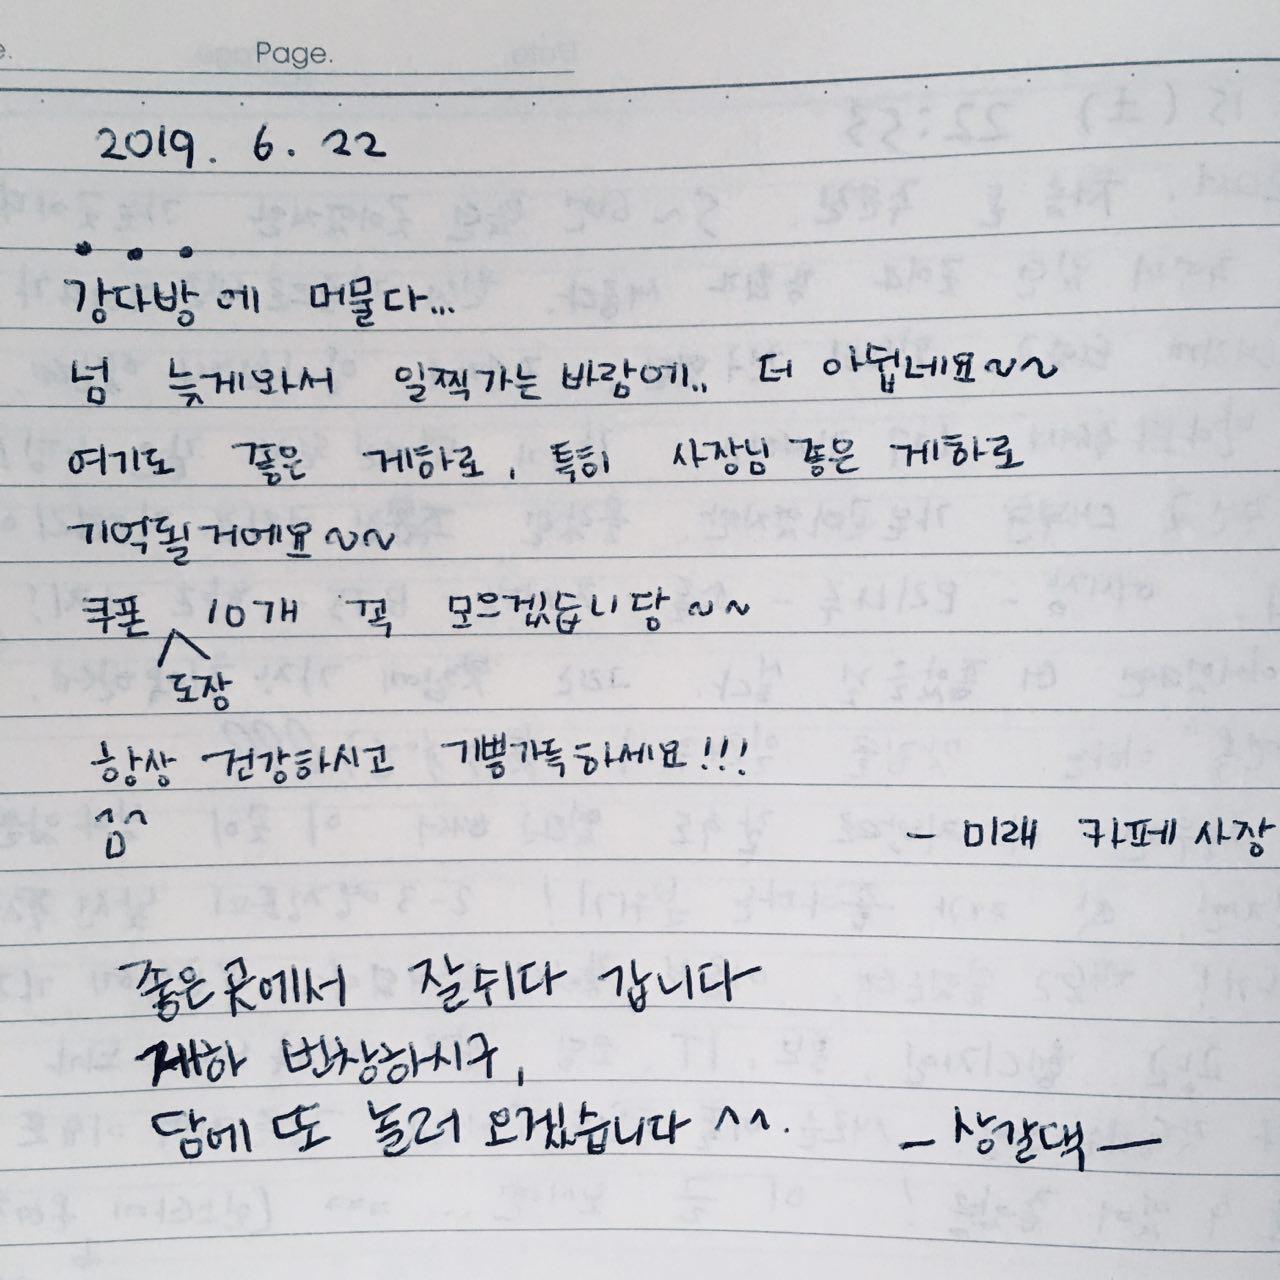 Page.
2019. 6. 22
강다방에 머물다...
넘 늦게와서 일찍가는 바람에.. 더 아쉽네요~~
여기도 좋은 게하로, 특히 사장님 좋은 게하로
기억될거에요~~
쿠폰 10개 꼭 모으겠습니당~~
도장
항상 건강하시고 기쁨가득하세요!!!
- 미래 카페사장
좋은곳에서 잘쉬다 갑니다
게하 번창하시구,
담에 또 놀러 오겠습니다 ^^.
- 상갈댁 -